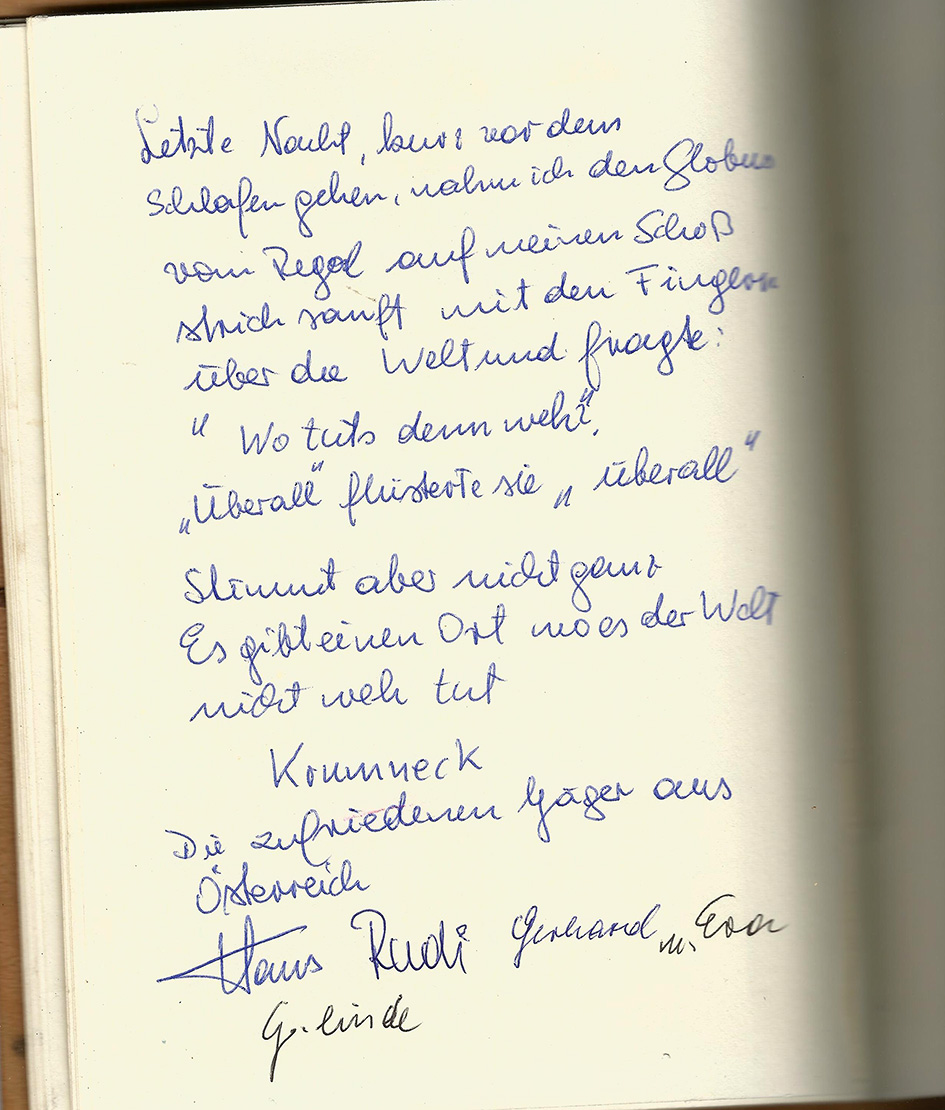 Letzte Nacht, kurz vor dem
Schlafen gehen, nahm ich den Globus
vom Regal auf meinen Schoß
strich sanft mit den Fingern
über die Welt und fragte:
" Wo tuts denn weh?"
„Überall" flüsterte sie „ überall"
Stimmt aber nicht ganz
Es gibt einen Ort wo es der Welt
nicht weh tut
Krumneck
Die zufriedenen Jäger aus
Österreich
Hans Rudi Gerhard u. Eva
Gerlinde